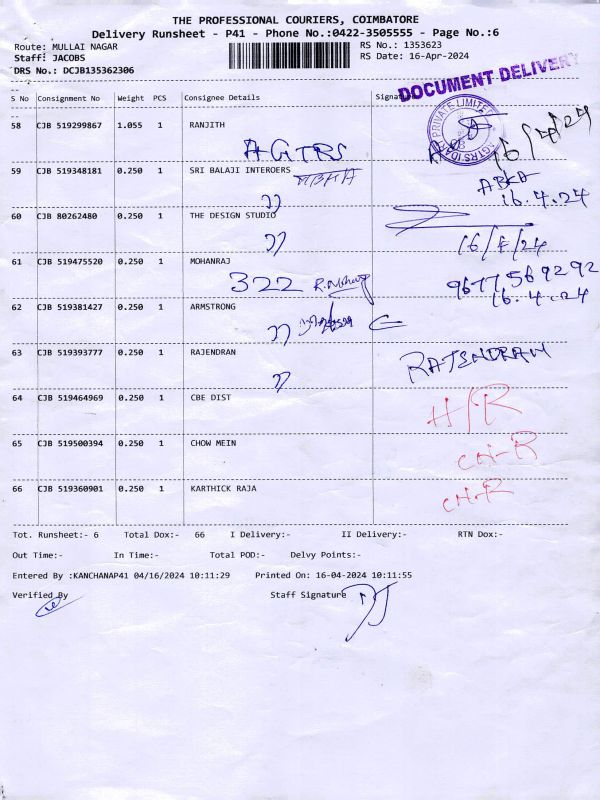 THE PROFESSIONAL COURIERS, COIMBATORE
Delivery Runsheet - P41 - Phone No.:0422-3505555 - Page No.:6
Route: MULLAI NAGAR RS No.: 1353623
Staff: JACOBS RS Date: 16-Apr-2024
DRS No.: DCJB135362306
DOCUMENT DELIVERY
S No Consignment No Weight PCS Consignee Details
58 CJB 519299867 1.055 1 RANJITH
AGTRS 16/4/24
PRIVATE LIMITED
59 CJB 519348181 0.250 1 SRI BALAJI INTEROERS
16.4.24
60 CJB 80262480 0.250 1 THE DESIGN STUDIO
16/4/24
61 CJB 519475520 0.250 1 MOHANRAJ
322 9677569292
16.4.24
62 CJB 519381427 0.250 1 ARMSTRONG
63 CJB 519393777 0.250 1 RAJENDRAN
RAJENDRAN
64 CJB 519464969 0.250 1 CBE DIST
H/R
65 CJB 519500394 0.250 1 CHOW MEIN
CN-R
66 CJB 519360901 0.250 1 KARTHICK RAJA
CN-R
Tot. Runsheet:- 6 Total Dox:- 66 I Delivery:- II Delivery:- RTN Dox:-
Out Time:- In Time:- Total POD:- Delvy Points:-
Entered By :KANCHANAP41 04/16/2024 10:11:29 Printed On: 16-04-2024 10:11:55
Verified By Staff Signature